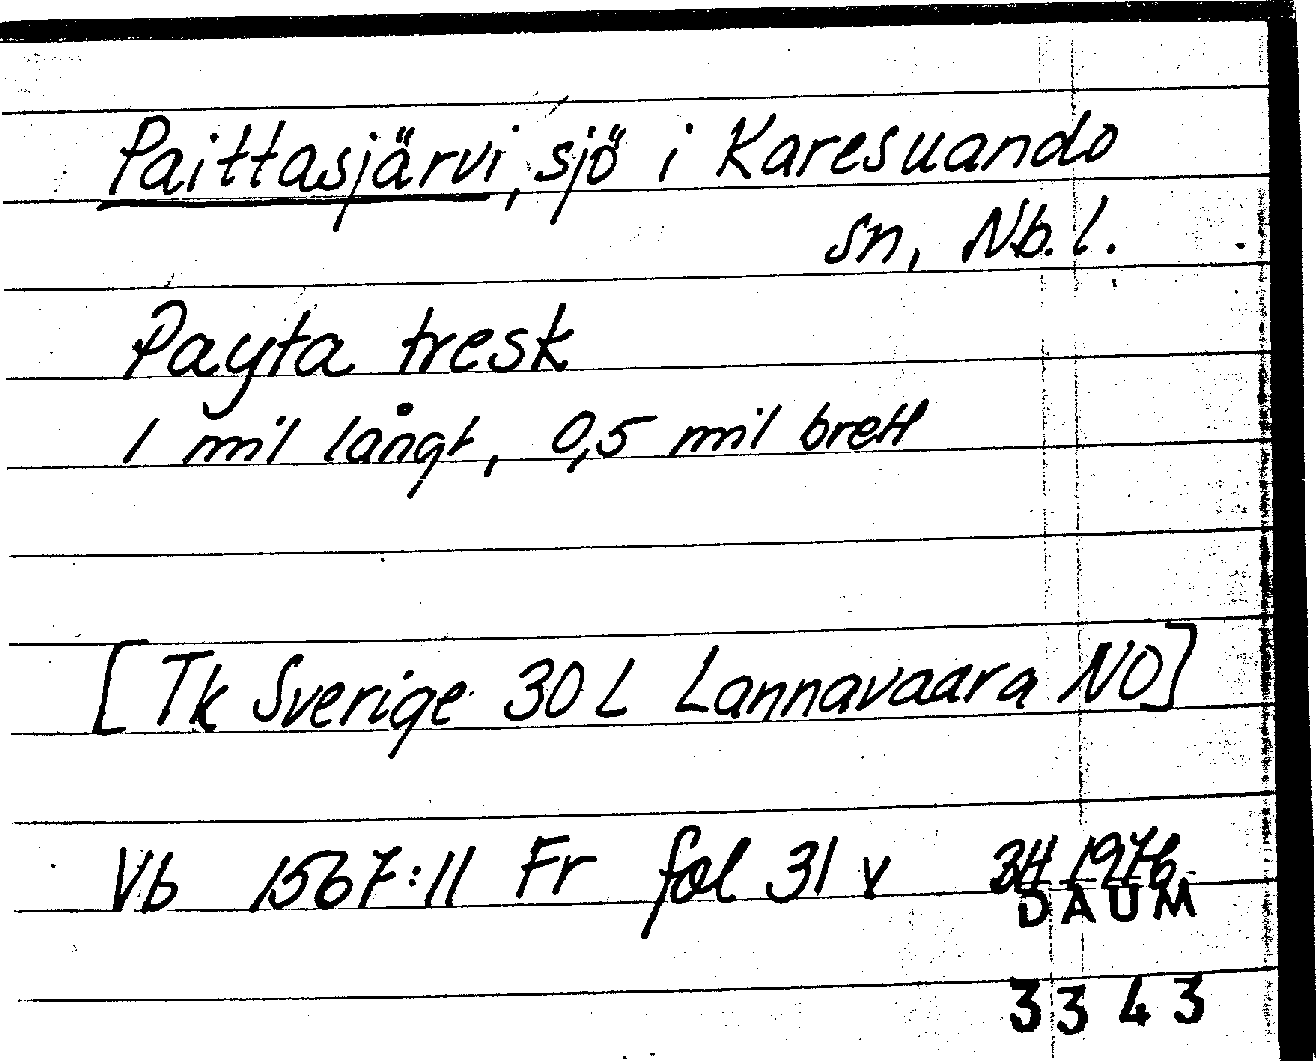 Paittasjärvi, sjö i Karesuando
sn, Nb. l.
Payta tresk
1 mil långt, 0,5 mil brett
[Tk Sverige 30 L Lannavaara NO]
Vb 1567:11 Fr fol 31 v 3H 1976
DAUM
3343